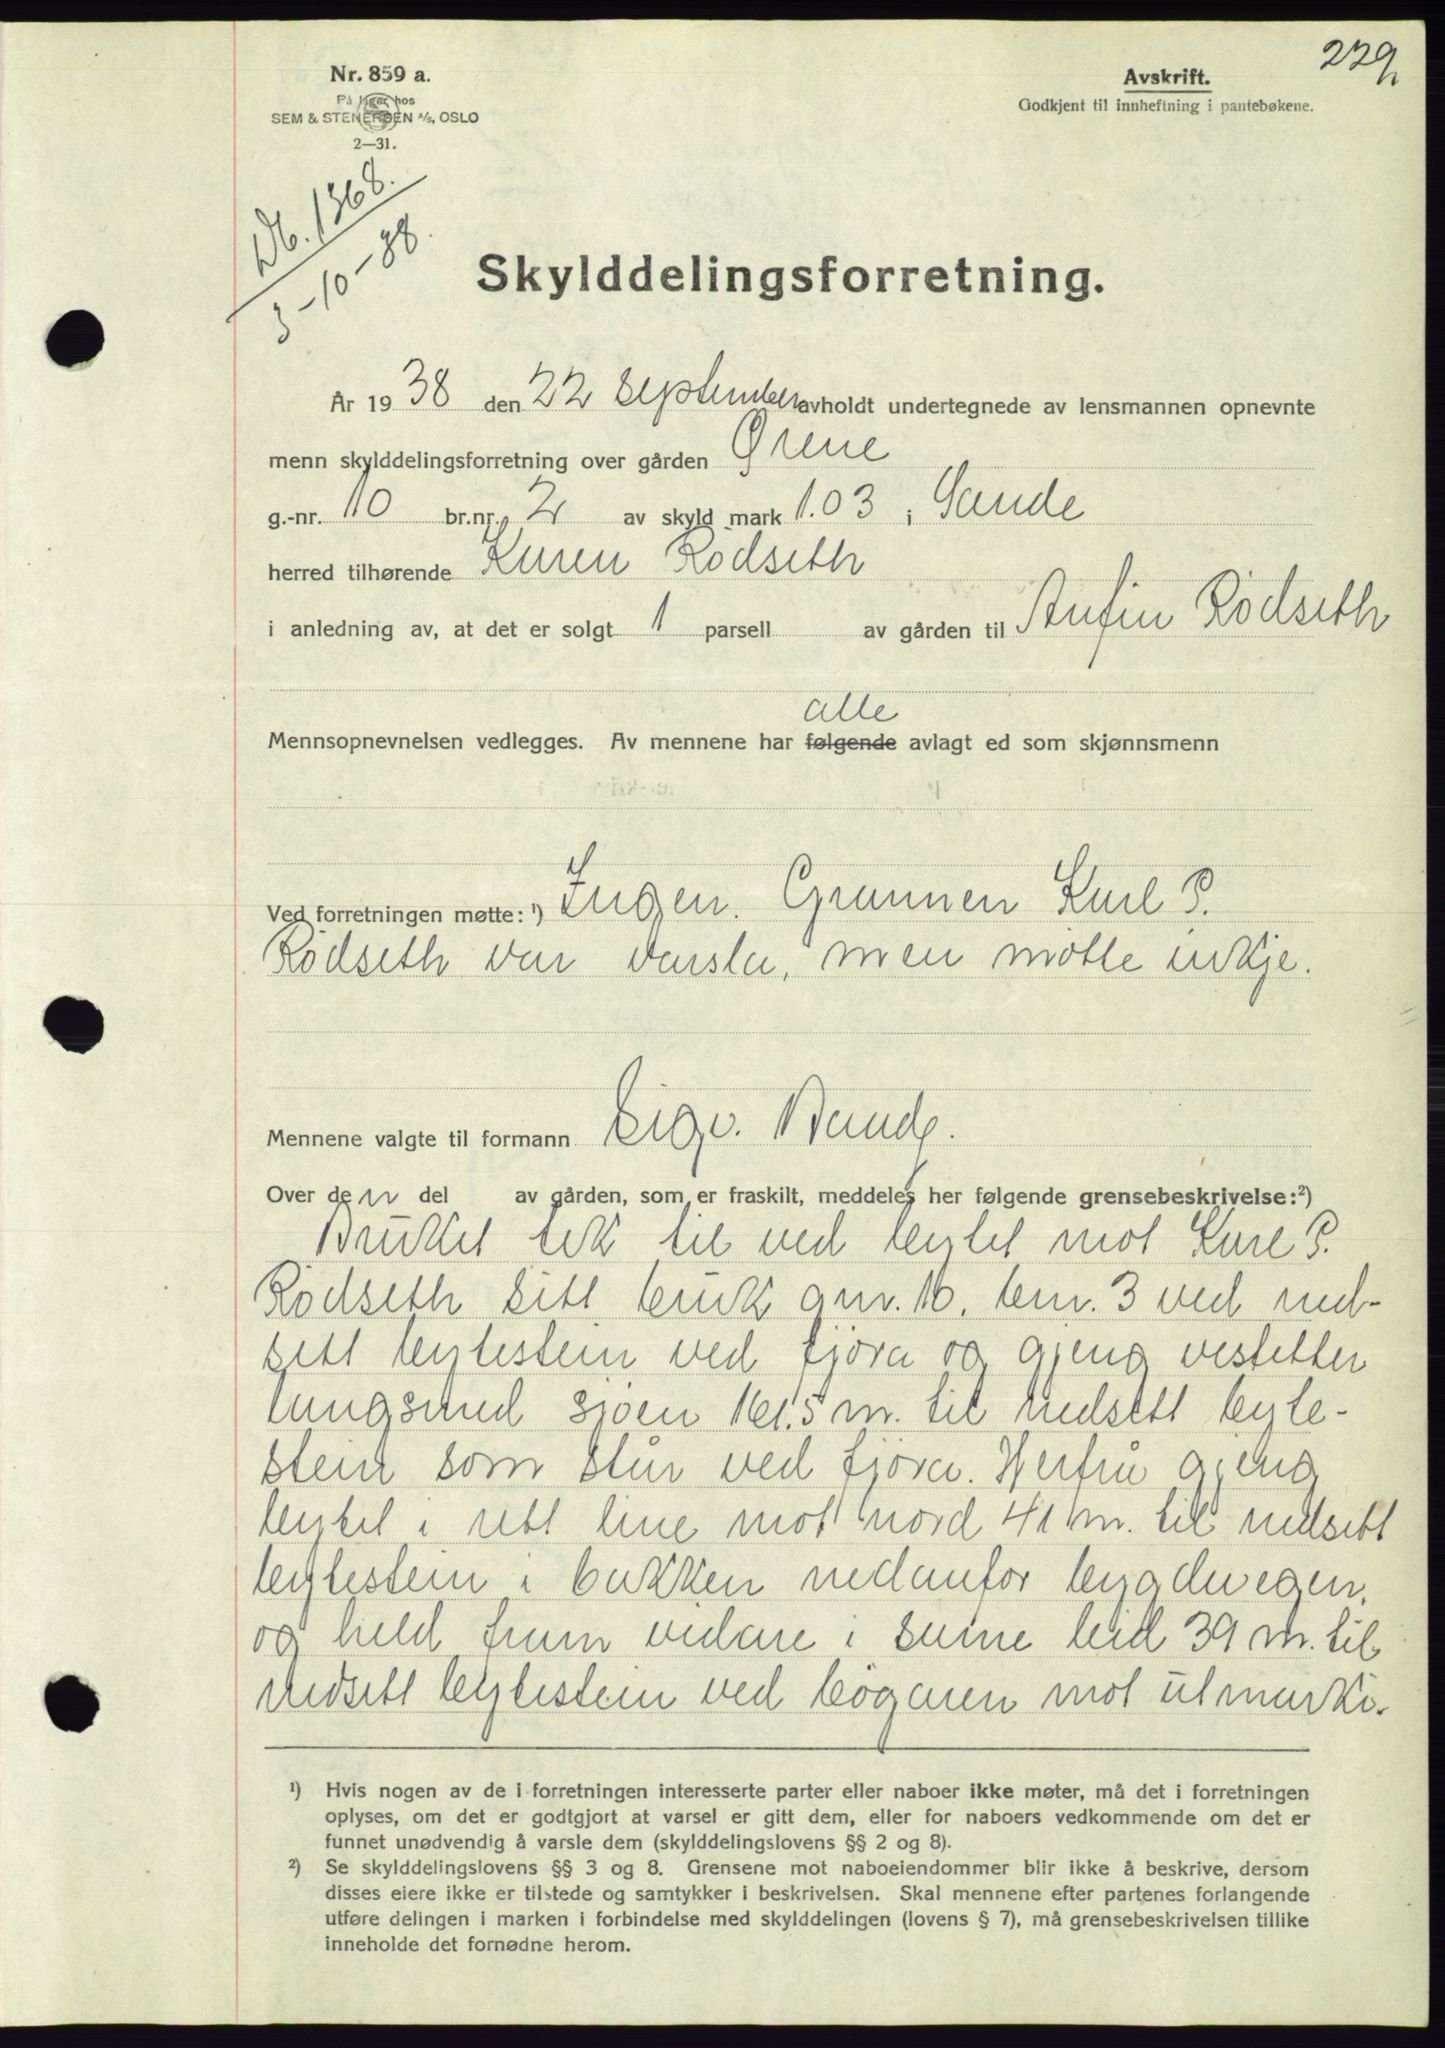 229
Nr. 859 a.
På lager hos
SEM & STENERSEN A/S, OSLO
2—31.
Avskrift.
Godkjent til innheftning i pantebøkene.
Db. 1368.
3-10-38.
Skylddelingsforretning.
År 1938 den 22 September avholdt undertegnede av lensmannen opnevnte
menn skylddelingsforretning over gården Ørene
g.-nr. 10 br.nr. 2 av skyld mark 1.03 i Sande
herred tilhørende Karen Rödseth
i anledning av, at det er solgt 1 parsell av gården til Anfin Rödseth
alle
Mennsopnevnelsen vedlegges. Av mennene har følgende avlagt ed som skjønnsmenn
Ved forretningen møtte: ¹) Ingen. Grannen Karl P.
Rödseth var varsla, men mötte inkje.
Mennene valgte til formann Sigv. Bande.
Over den del av gården, som er fraskilt, meddeles her følgende grensebeskrivelse:²)
Bruket tek til ved bytet mot Karl P.
Rödseth sitt bruk gnr. 10. bnr. 3 ved ned-
sett bytestein ved fjöra og gjeng vestetter
langsmed sjöen 161.5 m. til nedsett byte-
stein som står ved fjöra. Herfrå gjeng
bytet i rett line mot nord 41 m. til nedsett
bytestein i bakken nedanfor bygdevegen,
og held fram vidare i same leid 39 m. til
nedsett bytestein ved bögaren mot utmarki.
¹) Hvis nogen av de i forretningen interesserte parter eller naboer ikke møter, må det i forretningen
oplyses, om det er godtgjort at varsel er gitt dem, eller for naboers vedkommende om det er
funnet unødvendig å varsle dem (skylddelingslovens §§ 2 og 8).
²) Se skylddelingslovens §§ 3 og 8. Grensene mot naboeiendommer blir ikke å beskrive, dersom
disses eiere ikke er tilstede og samtykker i beskrivelsen. Skal mennene efter partenes forlangende
utføre delingen i marken i forbindelse med skylddelingen (lovens § 7), må grensebeskrivelsen tillike
inneholde det fornødne herom.